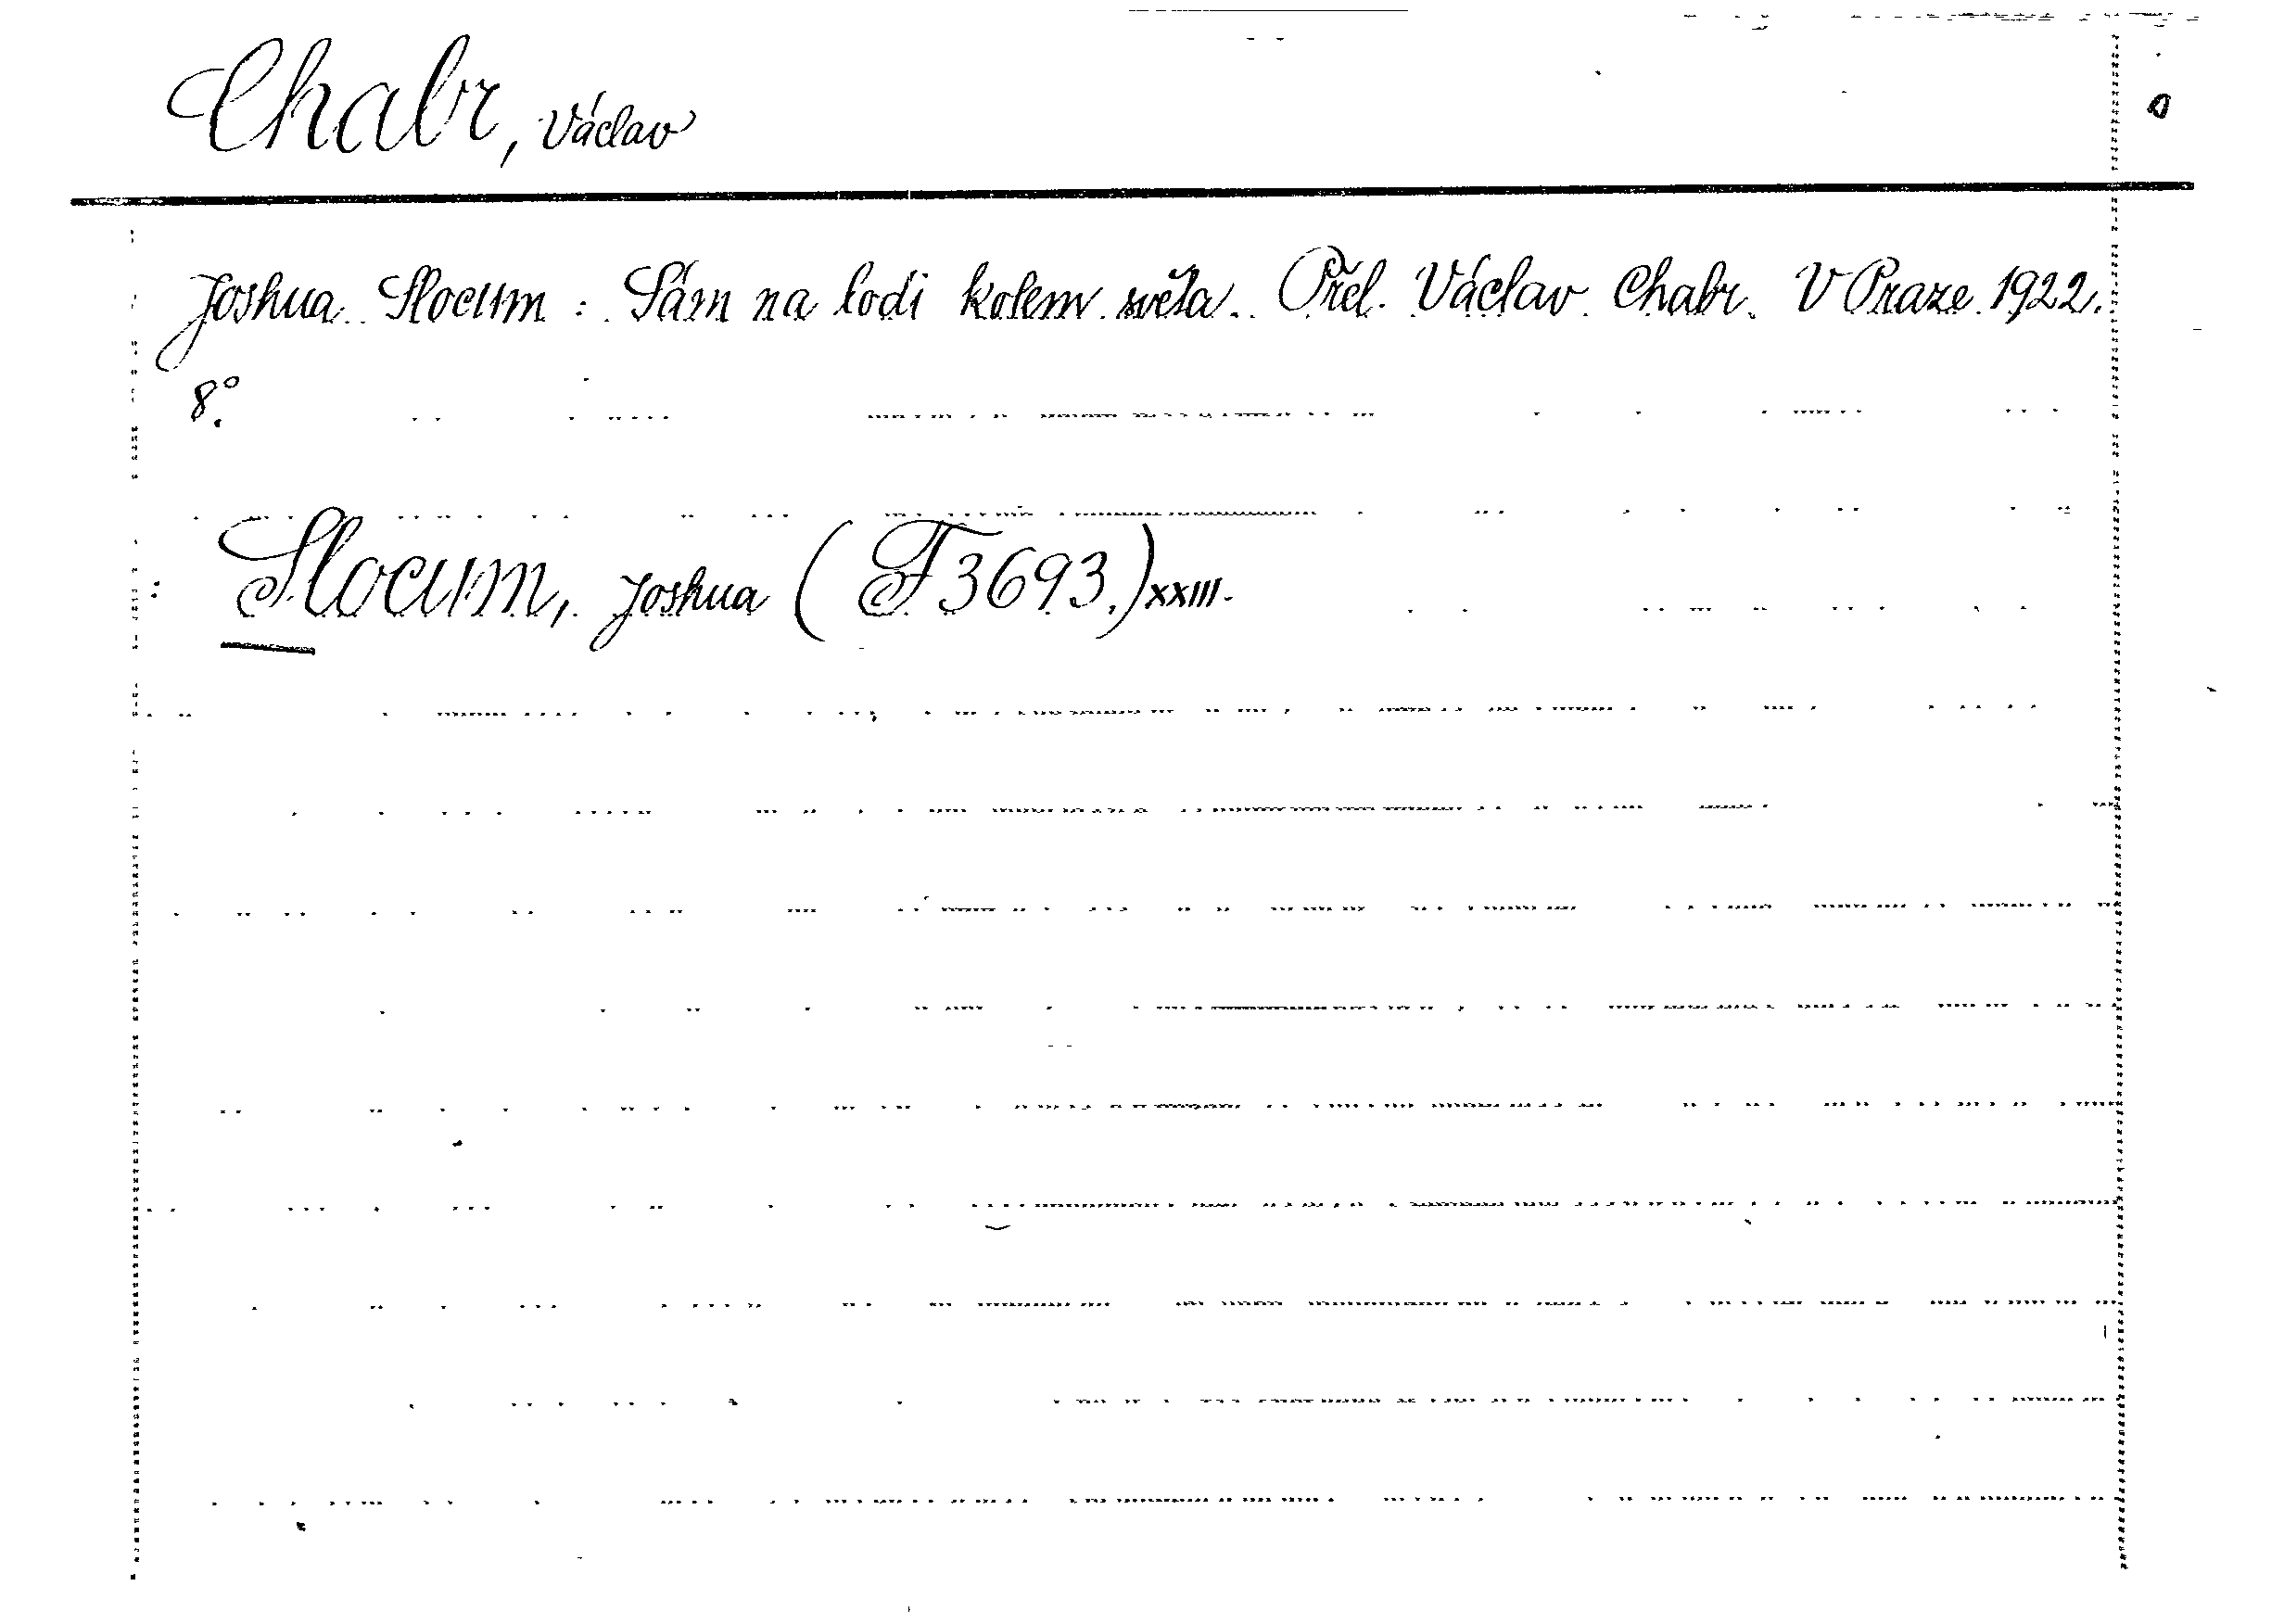 Chabr, Václav
Joshua Slocum: Sám na lodi kolem světa. Přel. Václav Chabr. V Praze 1922.
8°.
Slocum, Joshua (F 3693.) XXIII.